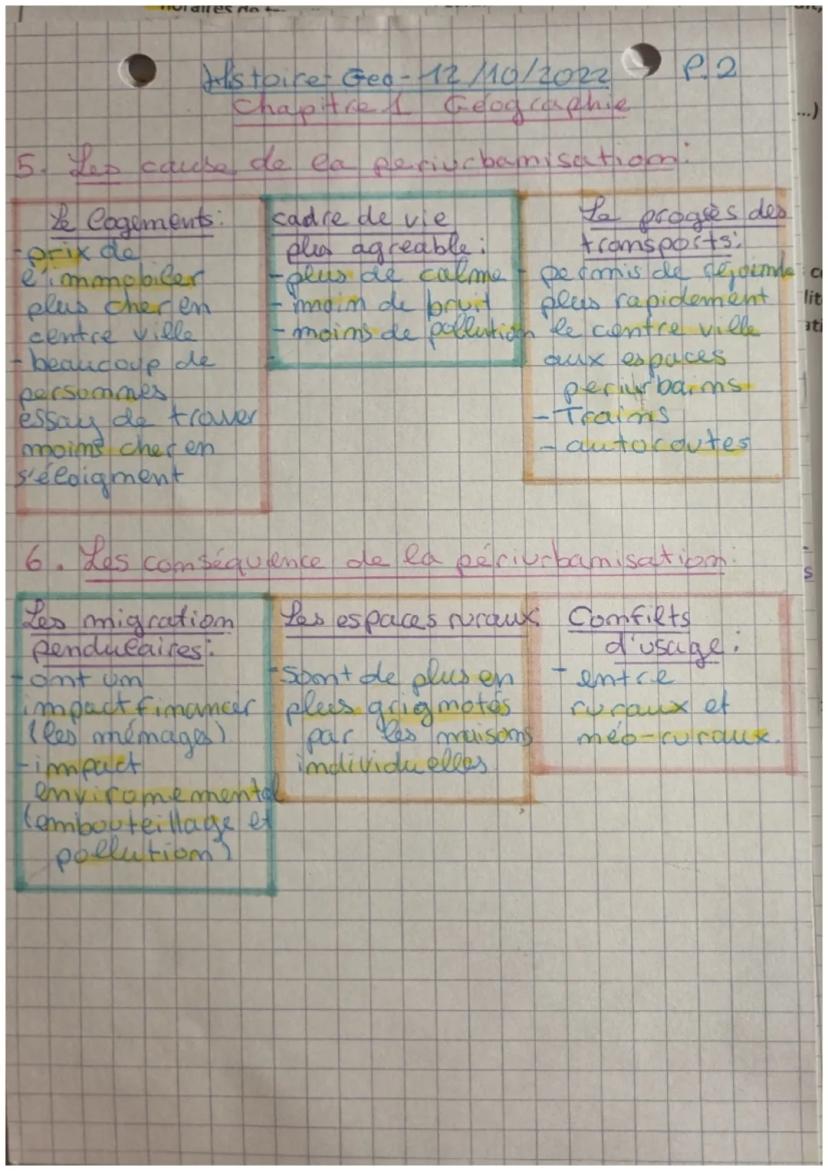 Histoire-Geo-12/10/2022 P.2
Chapitre 1 Géographie
5. Les cause de la periurbanisation:
Le logements:
-prix de
l'immobiler
plus cher en
centre ville
-beaucoup de
personnes
essay de trouver
moins cher en
s'éloigment
cadre de vie
plus agreable:
-plus de calme
-moin de bruit
-moins de pollution
-
La progrès des
transports:
- permis de rejoindre
plus rapidement
le centre ville
aux espaces
periurbains
-Trains
-autoroutes
6. Les conséquence de la périurbanisation:
Les migration
pendulaires:
-ont un
impact financer
(les ménages)
-impact
enviromemental
(embouteillage et
pollution)
Les espaces ruraux
-sont de plus en
plus grignotés
par les maisons
individuelles
Confilts
d'usage:
- entre
ruraux et
néo-ruraux.